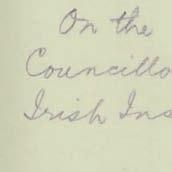 On the
Councillo
Irish Ins